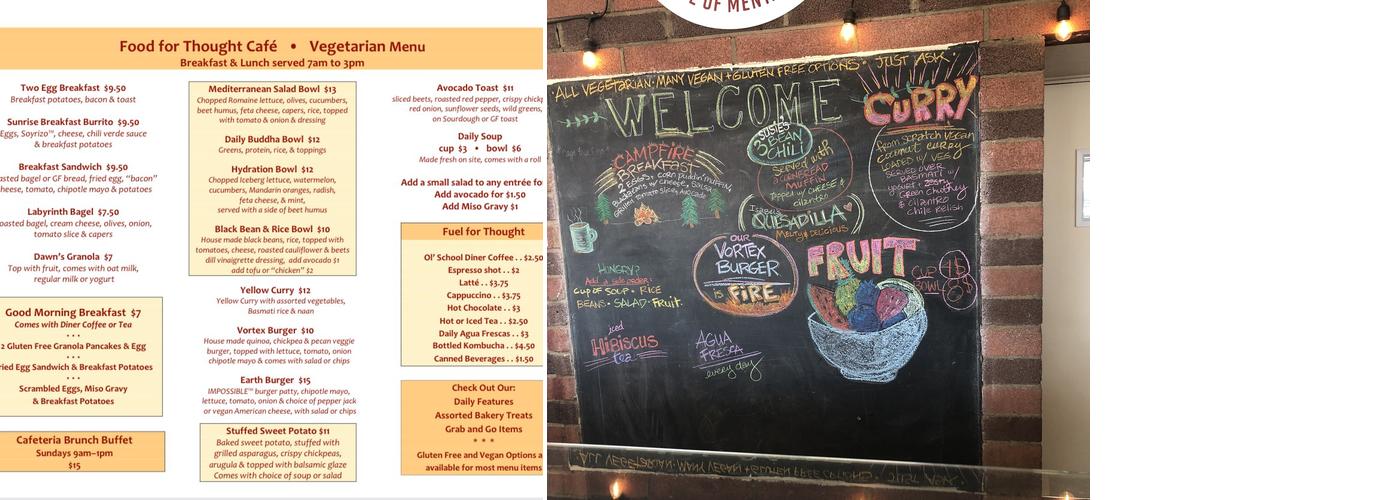 Food for Thought Café • Vegetarian Menu
Breakfast & Lunch served 7am to 3pm
Two Egg Breakfast $9.50
Breakfast potatoes, bacon & toast
Sunrise Breakfast Burrito $9.50
Eggs, Soyrizo™, cheese, chili verde sauce
& breakfast potatoes
Breakfast Sandwich $9.50
bagel or GF bread, fried egg, “bacon”
cheese, tomato, chipotle mayo & potatoes
Labyrinth Bagel $7.50
bagel, cream cheese, olives, onion,
tomato slice & capers
Dawn's Granola $7
Top with fruit, comes with oat milk,
regular milk or yogurt
Good Morning Breakfast $7
Comes with Diner Coffee or Tea
• • •
2 Gluten Free Granola Pancakes & Egg
• • •
Egg Sandwich & Breakfast Potatoes
• • •
Scrambled Eggs, Miso Gravy
& Breakfast Potatoes
Cafeteria Brunch Buffet
Sundays 9am–1pm
$15
Mediterranean Salad Bowl $13
Chopped Romaine lettuce, olives, cucumbers,
beet humus, feta cheese, capers, rice, topped
with tomato & onion & dressing
Daily Buddha Bowl $12
Greens, protein, rice, & toppings
Hydration Bowl $12
Chopped Iceberg lettuce, watermelon,
cucumbers, Mandarin oranges, radish,
feta cheese, & mint,
served with a side of beet humus
Black Bean & Rice Bowl $10
House made black beans, rice, topped with
tomatoes, cheese, roasted cauliflower & beets
dill vinaigrette dressing, add avocado $1
add tofu or “chicken” $2
Yellow Curry $12
Yellow Curry with assorted vegetables,
Basmati rice & naan
Vortex Burger $10
House made quinoa, chickpea & pecan veggie
burger, topped with lettuce, tomato, onion
chipotle mayo & comes with salad or chips
Earth Burger $15
IMPOSSIBLE™ burger patty, chipotle mayo,
lettuce, tomato, onion & choice of pepper jack
or vegan American cheese, with salad or chips
Stuffed Sweet Potato $11
Baked sweet potato, stuffed with
grilled asparagus, crispy chickpeas,
arugula & topped with balsamic glaze
Comes with choice of soup or salad
Avocado Toast $11
sliced beets, roasted red pepper, crispy
red onion, sunflower seeds, wild greens,
on Sourdough or GF toast
Daily Soup
cup $3 • bowl $6
Made fresh on site, comes with a roll
Add a small salad to any entrée
Add avocado for $1.50
Add Miso Gravy $1
Fuel for Thought
Ol' School Diner Coffee . . $2.50
Espresso shot . . $2
Latté . . $3.75
Cappuccino . . $3.75
Hot Chocolate . . $3
Hot or Iced Tea . . $2.50
Daily Agua Frescas . . $3
Bottled Kombucha . . $4.50
Canned Beverages . . $1.50
Check Out Our:
Daily Features
Assorted Bakery Treats
Grab and Go Items
* * *
Gluten Free and Vegan Options
available for most menu items
OF
ALL VEGETARIAN · MANY VEGAN + GLUTEN FREE OPTIONS · JUST ASK ·
WELCOME
CAMPFIRE
BREAKFAST
2 EGGS + corn pudding muffin,
Blackbeans w/ cheese, salsa
Grilled tomato slice, Avocado
SUSIE'S
3 BEAN
CHILI
served with
CORNBREAD
MUFFIN
topped w/ CHEESE &
cilantro
CURRY
from scratch vegan
coconut curry
LOADED w/ VEG
SERVED OVER
BASMATI w/
yogurt + zesty
Green chutney
& cilantro
chile relish
QUESADILLA
Melty & Delicious
OUR
VORTEX
BURGER
is FIRE
FRUIT
CUP 4$
BOWL 6$
HUNGRY?
Add a side order:
CUP OF SOUP · RICE
BEANS · SALAD · Fruit.
iced
HiBiSCUS
tea
AGUA
FRESCA
every day